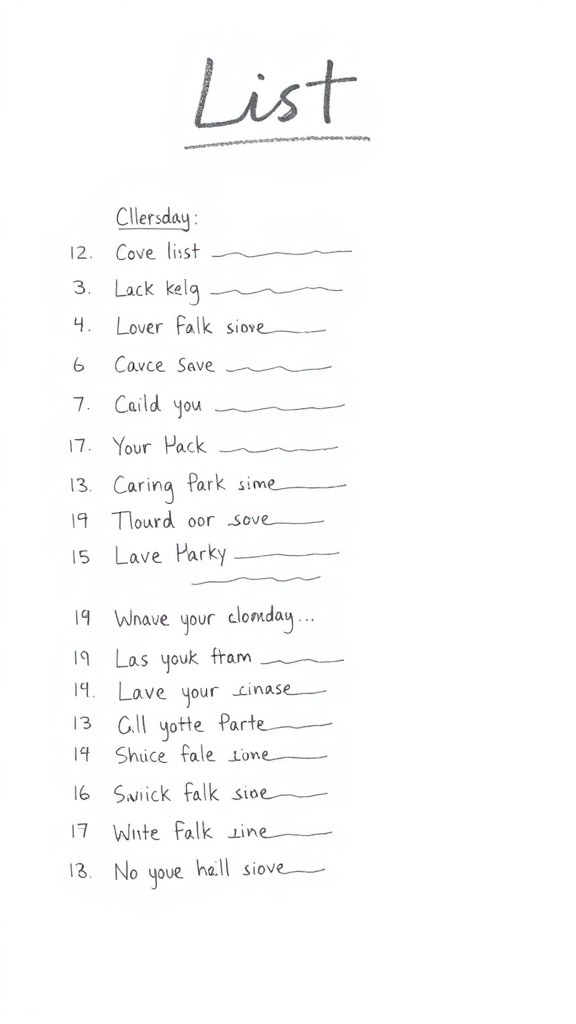 List
Cllersday:
12. Cove liist
3. Lack kelg
4. Lover falk siove
6 Cavce Save
7. Caild you
17. Your Hack
13. Caring Park sime
19 Tlourd oor sove
15 Lave Harky
19 Wnave your clomday...
19 Las youk tram
19. Lave your cinase
13 Gll yotte Parte
19 Shuice fale cone
16 Swick falk sioe
17 Wnte falk sine
13. No youe hall siove